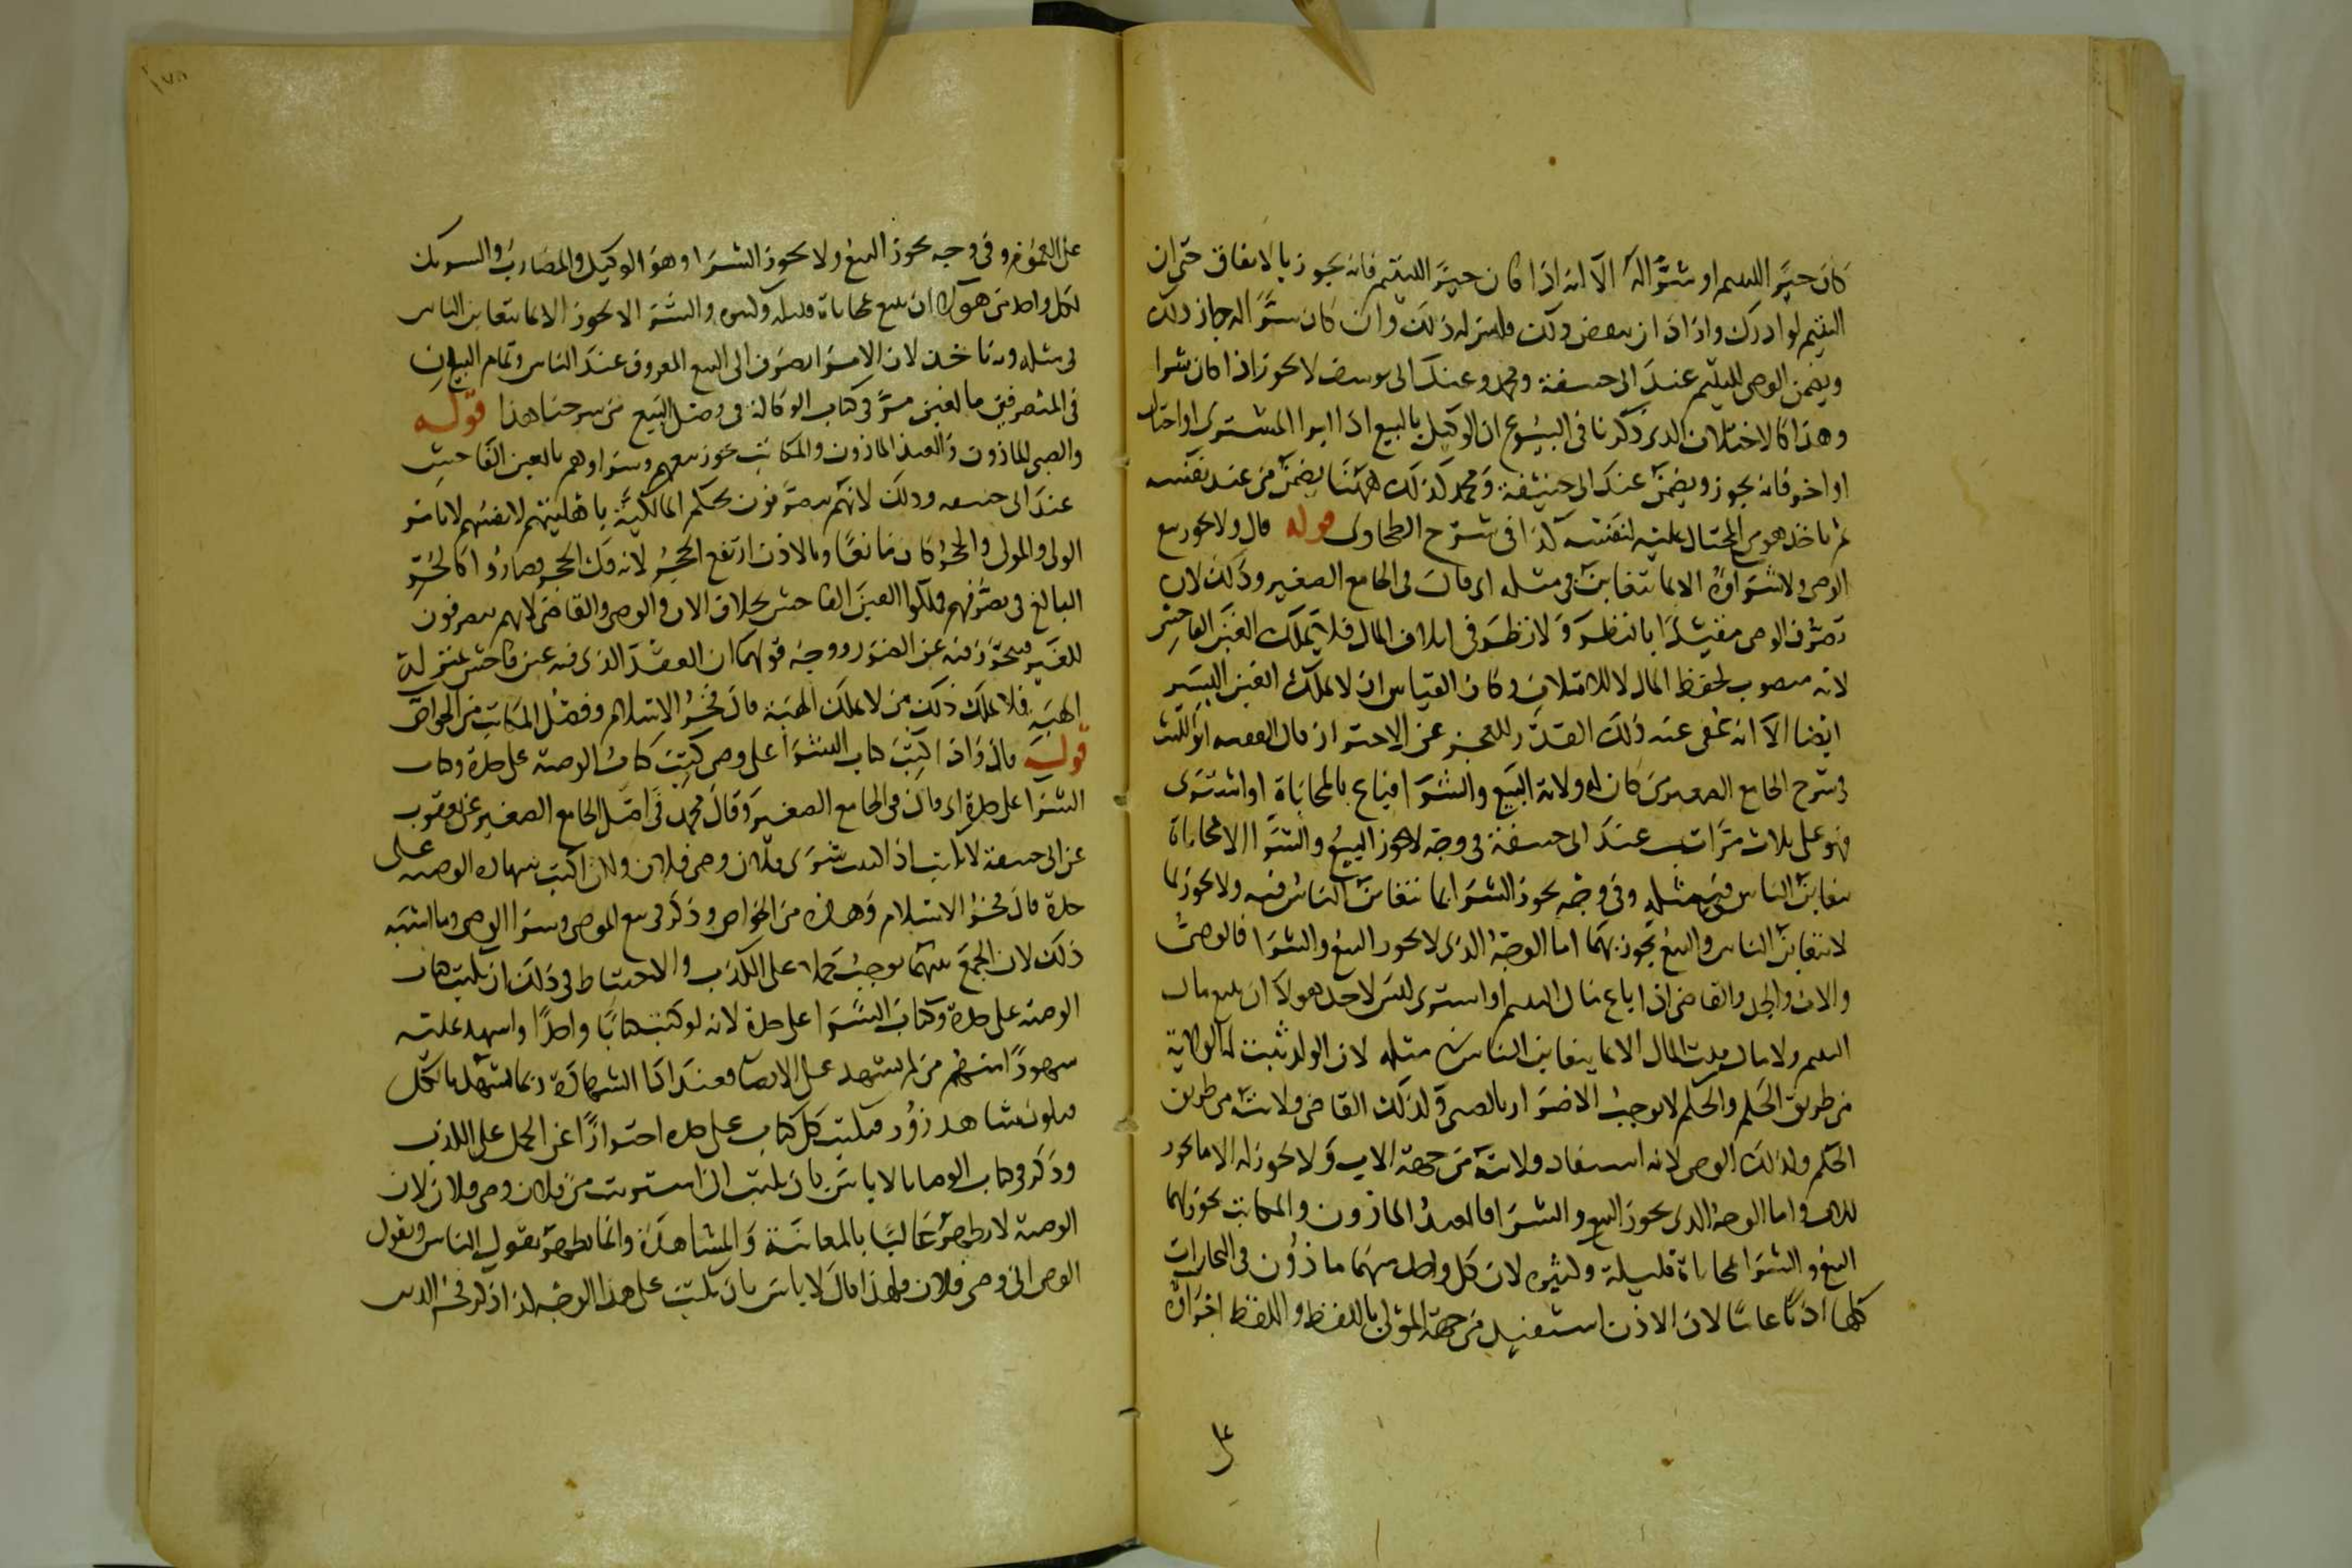 كان خيرا لليتيم او شرا له الا انه اذا كان خيرا لليتيم فانه يجوز بالاتفاق حتى ان
اليتيم لو ادرك واذا اراد ان ينقض ذلك فليس له ذلك وان كان شرا له جاز ذلك
ويضمن الوصى لليتيم عند ابى حنيفة ومحمد وعند ابى يوسف لا يجوز اذا كان شرا
وهذا كالاختلاف الذى ذكرنا فى البيوع ان الوكيل بالبيع اذا ابرا المشترى او احتال
او اخر فانه يجوز ويضمن عند ابى حنيفة ومحمد كذلك ههنا يضمن من عند نفسه
ثم ياخذ هو من المحتال عليه لنفسه كذا فى شرح الطحاوى قوله قال ولا يجوز بيع
الوصى ولا شراوه الا بما يتغابن فى مثله اى قال فى الجامع الصغير وذلك لان
تصرف الوصى مقيد بالنظر ولا نظر فى اتلاف المال فلا يملك الغبن الفاحش
لانه منصوب لحفظ المال لا للاتلاف وكان القياس ان لا يملك الغبن اليسير
ايضا الا انه عفى عنه ذلك القدر للعجز عن الاحتراز قال الفقيه ابو الليث
فى شرح الجامع الصغير من كان له ولاية البيع والشرا فباع بالمحاباة او اشترى
فهو على ثلاث مراتب عند ابى حنيفة فى وجه لا يجوز البيع والشرا الا محاباة
يتغابن الناس فى مثله وفى وجه يجوز الشرا بما يتغابن الناس فيه ولا يجوز بما
لا يتغابن الناس والبيع يجوز بهما اما الوجه الذى لا يجوز البيع والشرا فالوصى
والاب والجد والقاضى اذا باع مال اليتيم او اشترى ليس لاحد هولا ان يبيع مال
اليتيم ولا مال بيت المال الا بما يتغابن الناس فى مثله لان الولد ثبت له الولاية
من طريق الحكم والحكم لا يوجب الاضرار بالصبى وكذلك القاضى ولايته من طريق
الحكم وكذلك الوصى لانه استفاد ولاية من جهة الاب ولا يجوز له الا ما يجوز
للاب واما الوجه الذى يجوز البيع والشرا فالعبد الماذون والمكاتب يجوز لهما
البيع والشرا محاباة قليلة وكثيرة لان كل واحد منهما ماذون فى التجارات
كلها اذنا عاما لان الاذن استفيد من جهة المولى باللفظ واللفظ اجراوه
على
على العموم وفى وجه يجوز البيع ولا يجوز الشرا وهو الوكيل والمضارب والشريك
لكل واحد من هولا ان يبيع بمحاباة قليلة وكثيرة والشرا لا يجوز الا بما يتغابن الناس
فى مثله وبه ناخذ لان الامر انصرف الى البيع المعروف عند الناس وتمام البيان
فى المتصرفين بالغبن مر فى كتاب الوكالة فى فصل البيع من شرحنا هذا قوله
والصبى الماذون والعبد الماذون والمكاتب يجوز بيعهم وشراوهم بالغبن الفاحش
عند ابى حنيفة وذلك لانهم يتصرفون بحكم المالكية باهليتهم لانفسهم لا بامر
الولى والمولى والحجر كان مانعا وبالاذن ارتفع الحجر لانه فك الحجر فصاروا كالحر
البالغ فى تصرفهم فملكوا الغبن الفاحش بخلاف الاب والوصى والقاضى لانهم يتصرفون
للغير فيحترز فيه عن الضرر ووجه قولهما ان العقد الذى فيه غبن فاحش بمنزلة
الهبة فلا يملك ذلك من لا يملك الهبة قال فخر الاسلام وفصل المكاتب من الخواص
قوله قال واذا كتب كتاب الشرا على وصى كتب كتاب الوصية على حدة وكتاب
الشرا على حدة اى قال فى الجامع الصغير وقال محمد فى اصل الجامع الصغير عن يعقوب
عن ابى حنيفة لا يكتب اذا كتب شرى فلان وصى فلان ولكن اكتب شهادة الوصية على
حدة قال فخر الاسلام وهذه من الخواص وذكر فى بيع الموصى وشرا الوصى وما اشبه
ذلك لان الجمع بينهما يوجب حملا على الكذب والاحتياط فى ذلك ان يكتب كتاب
الوصية على حدة وكتاب الشرا على حدة لانه لو كتب كتابا واحدا واشهد عليه
شهودا منهم من لم يشهد على الايصا فعند ادا الشهادة ربما يشهد بالكل
فيكون شاهد زور فيكتب كل كتاب على حدة احترازا عن الحمل على الكذب
وذكر فى كتاب الوصايا لا باس بان يكتب اذا اشتريت من فلان وصى فلان لان
الوصية لا يظهر غالبا بالمعاينة والمشاهدة وانما يظهر بقول الناس وبقول
الوصى انى وصى فلان فلهذا قال لا باس بان يكتب على هذا الوجه كذا ذكر فخر الدين